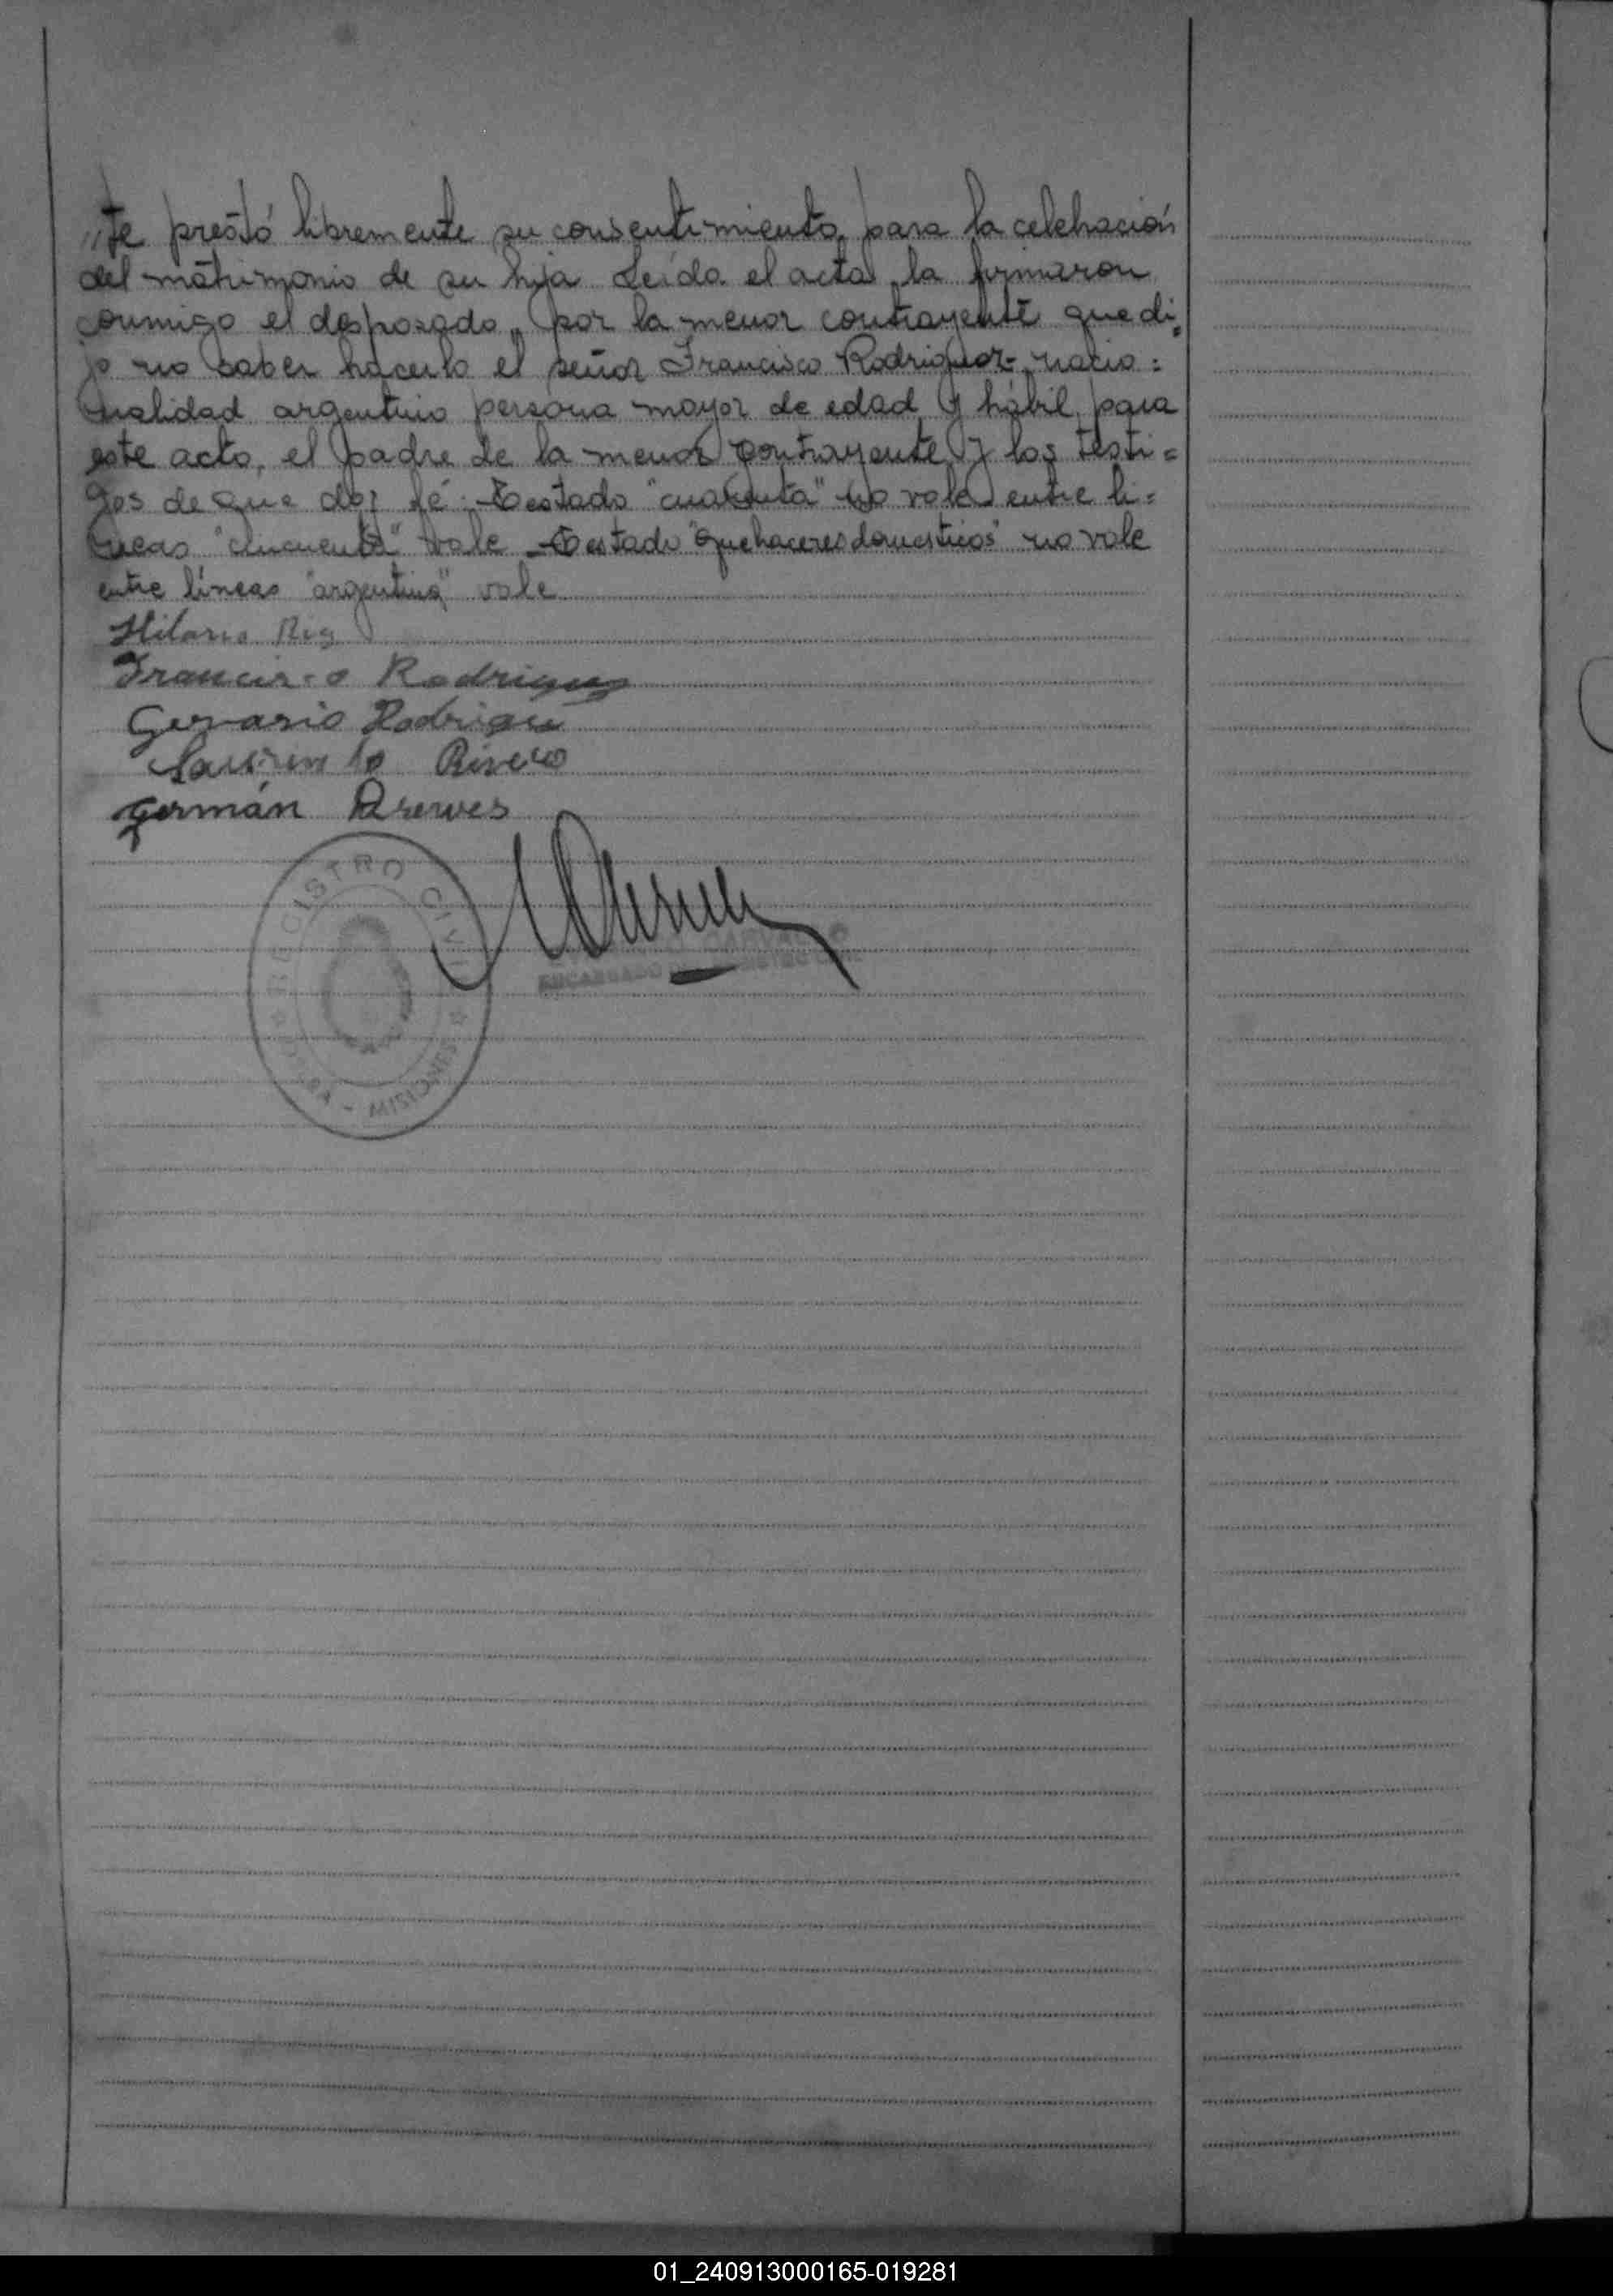 "te prestó libremente su consentimiento para la celebración
del matrimonio de su hija. Leída el acta, la firmaron
conmigo el desposado, por la menor contrayente que di=
jo no saber hacerlo el señor Francisco Rodriguez, nacio=
nalidad argentino persona mayor de edad y hábil para
este acto, el padre de la menor contrayente y los testi=
gos de que doy fé. Testado "cuarenta" no vale, entre li=
neas "cincuenta" vale - Testado "quehaceres domesticos" no vale
entre líneas "argentina" vale
Hilario
Francisco Rodriguez
Gervasio Rodrigue
Rivero
Germán
REGISTRO CIVIL
MISIONES
ENCARGADO
01_240913000165-019281